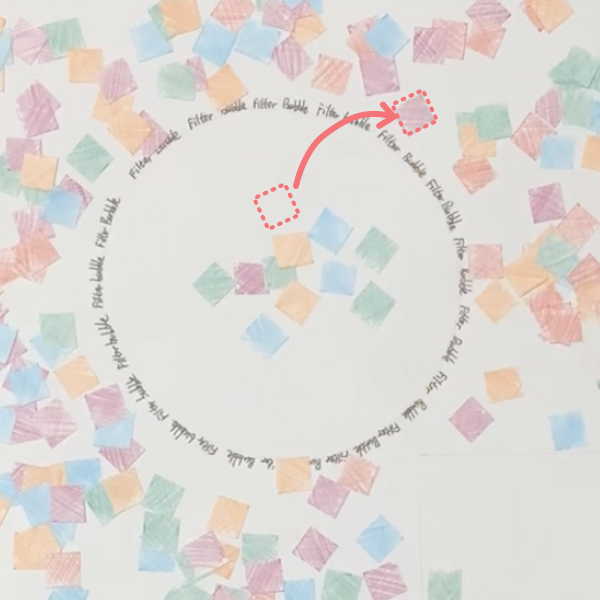 Filter Bubble
Filter bubble
Filter bubble
Filter Bubble
Filter bubble
Filter Bubble
Filter bubble
Filter Bubble
Filter Bubble
Filter Bubble
Filter Bubble
Filter bubble
Filter bubble
Filter bubble
Filter bubble
Filter Bubble